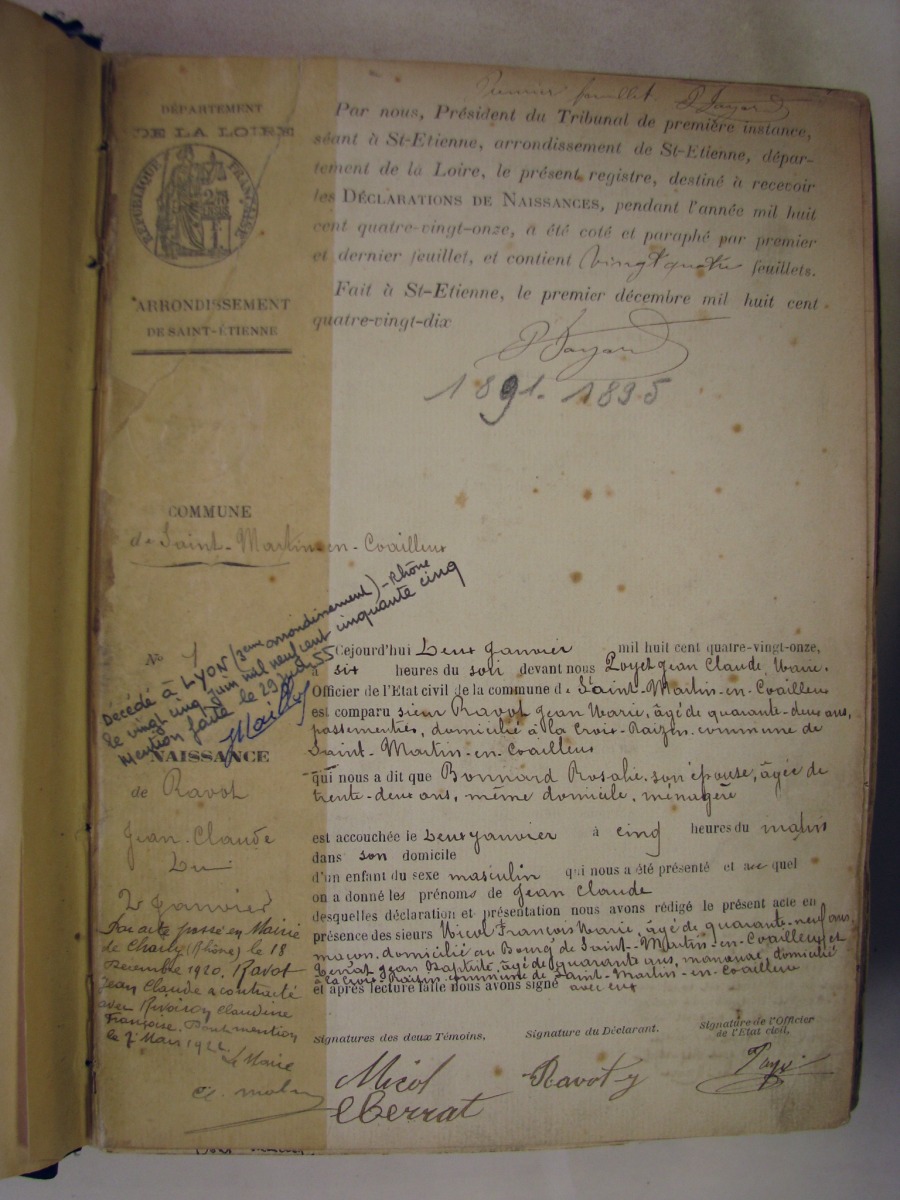 Premier feuillet P. Fayard
DÉPARTEMENT
DE LA LOIRE
RÉPUBLIQUE FRANÇAISE
ARRONDISSEMENT
DE SAINT-ÉTIENNE
Par nous, Président du Tribunal de première instance,
séant à St-Etienne, arrondissement de St-Etienne, dépar-
tement de la Loire, le présent registre, destiné à recevoir
les DÉCLARATIONS DE NAISSANCES, pendant l'année mil huit
cent quatre-vingt-onze, a été coté et paraphé par premier
et dernier feuillet, et contient vingt quatre feuillets.
Fait à St-Etienne, le premier décembre mil huit cent
quatre-vingt-dix
P. Fayard
1891. 1895
COMMUNE
de Saint-Martin-en-Coailleux
Décédé à LYON (3ème arrondissement)-Rhône
le vingt cinq juin mil neuf cent cinquante cinq
Mention faite le 29 juin 55
Nº 1
NAISSANCE
de Ravot
Jean-Claude
Du
2 Janvier
Par acte passé en Mairie
de Charly (Rhône) le 18
Décembre 1920, Ravot
Jean Claude a contracté
avec Rivoiron Claudine
Françoise. Dont mention
le 7 Mars 1922.
Le Maire
Cejourd'hui Deux Janvier mil huit cent quatre-vingt-onze,
à six heures du soir devant nous Poyet Jean Claude, Maire.
Officier de l'Etat civil de la commune de Saint-Martin-en-Coailleux
est comparu sieur Ravot Jean Marie, âgé de quarante-deux ans,
passementier, domicilié à la Croix-Raizin. commune de
Saint-Martin-en-Coailleux
qui nous a dit que Bonnard Rosalie. son épouse, âgée de
trente-deux ans, même domicile, ménagère
est accouchée le Deux Janvier à cinq heures du matin
dans son domicile
d'un enfant du sexe masculin qui nous a été présenté et au quel
on a donné les prénoms de Jean Claude
desquelles déclaration et présentation nous avons rédigé le présent acte en
présence des sieurs Micol François Marie, âgé de quarante-neuf ans,
maçon, domicilié au Bourg de Saint-Martin-en-Coailleux et
Terrat Jean Baptiste, âgé de quarante ans, manœuvre, domicilié
à la Croix-Raizin commune de Saint-Martin-en-Coailleux
et après lecture faite nous avons signé avec eux
Signatures des deux Témoins, Signature du Déclarant. Signature de l'Officier
de l'Etat civil.
Micol Ravot
Terrat